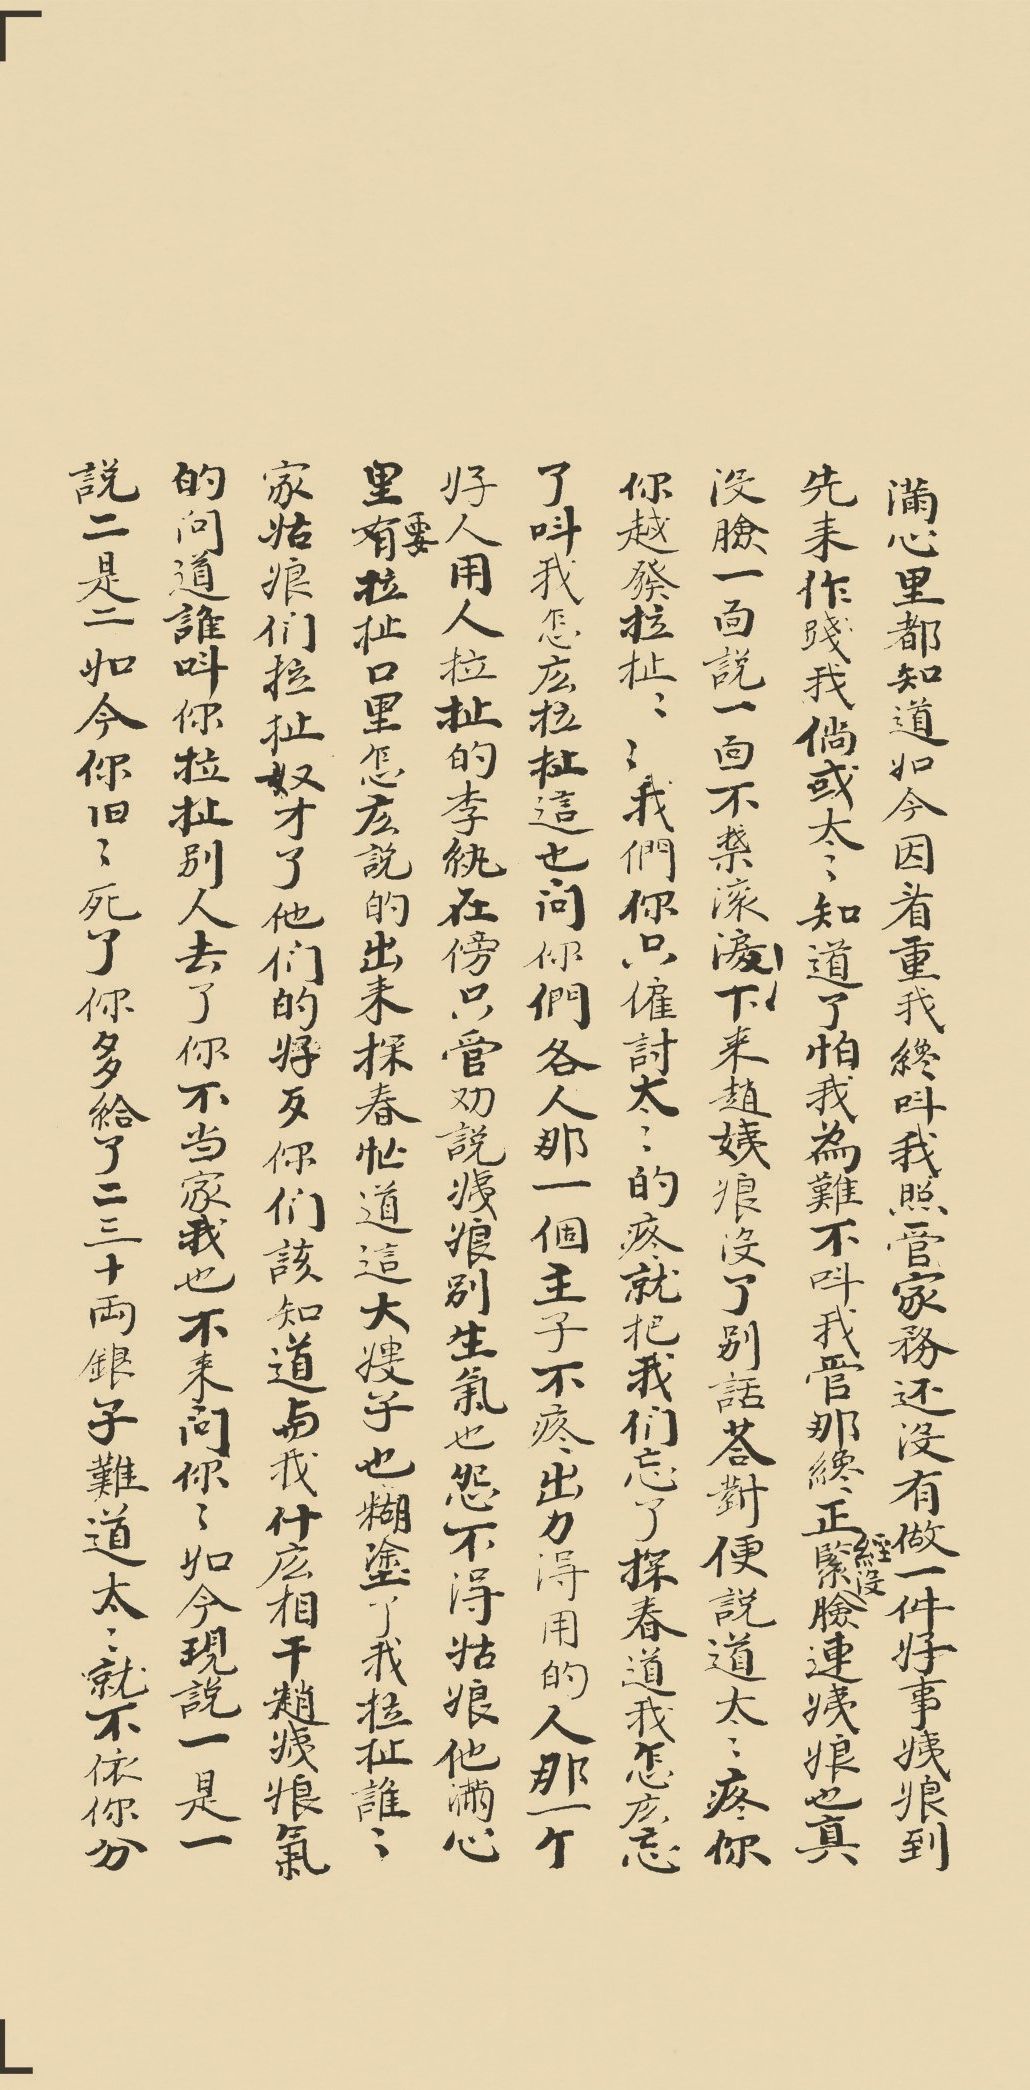 滿心里都知道如今因看重我終呌我照管家務还没有做一件好事姨娘到
先来作践我倘或太〻知道了怕我為難不呌我管那纔〻正緊經没臉連姨娘也真
没臉一面説一面不禁滚淚下来趙姨娘没了别話荅對便説道太〻疼你
你越發拉扯〻〻我們你只僱討太〻的疼就把我们忘了探春道我怎庅忘
了呌我怎庅拉扯這也问你們各人那一個主子不疼出力淂用的人那一个
好人用人拉扯的李纨在傍只管劝説姨娘别生氣也怨不淂姑娘他滿心
里有要拉扯口里怎庅説的出来探春忙道這大嫂子也糊塗了我拉扯誰〻
家姑娘们拉扯奴才了他们的好歹你们該知道与我什庅相干趙姨娘氣
的问道誰呌你拉扯别人去了你不当家我也不来问你〻如今現説一是一
説二是二如今你旧〻死了你多給了二三十両銀子難道太〻就不依你分